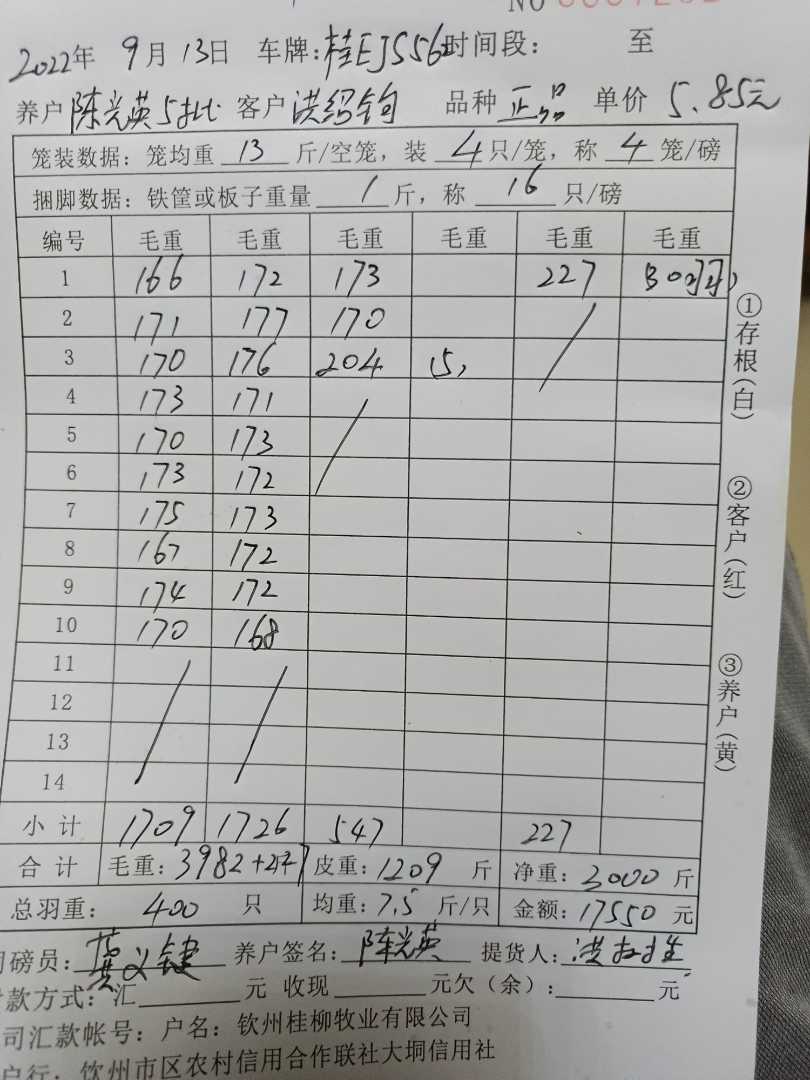 NO
2022年 9月13日 车牌:桂EJS562 时间段: 至
养户 陈光英5批 客户 洪绍钧 品种 正品 单价 5.85元
笼装数据:笼均重 13 斤/空笼,装 4 只/笼,称 4 笼/磅
捆脚数据:铁筐或板子重量 1 斤,称 16 只/磅
编号 毛重 毛重 毛重 毛重 毛重 毛重
1 166 172 173 227 30
2 171 177 170
3 170 176 204 15,
4 173 171
5 170 173
6 173 172
7 175 173
8 167 172
9 174 172
10 170 168
11
12
13
14
小计 1709 1726 547 227
合计 毛重:3982+227 皮重:1209 斤 净重:3000 斤
总羽重: 400 只 均重:7.5 斤/只 金额:17550 元
司磅员: 龚义键 养户签名: 陈光英 提货人: 洪
付款方式:汇 元 收现 元欠(余): 元
司汇款帐号:户名:钦州桂柳牧业有限公司
户行:钦州市区农村信用合作联社大垌信用社
①存根(白)
②客户(红)
③养户(黄)